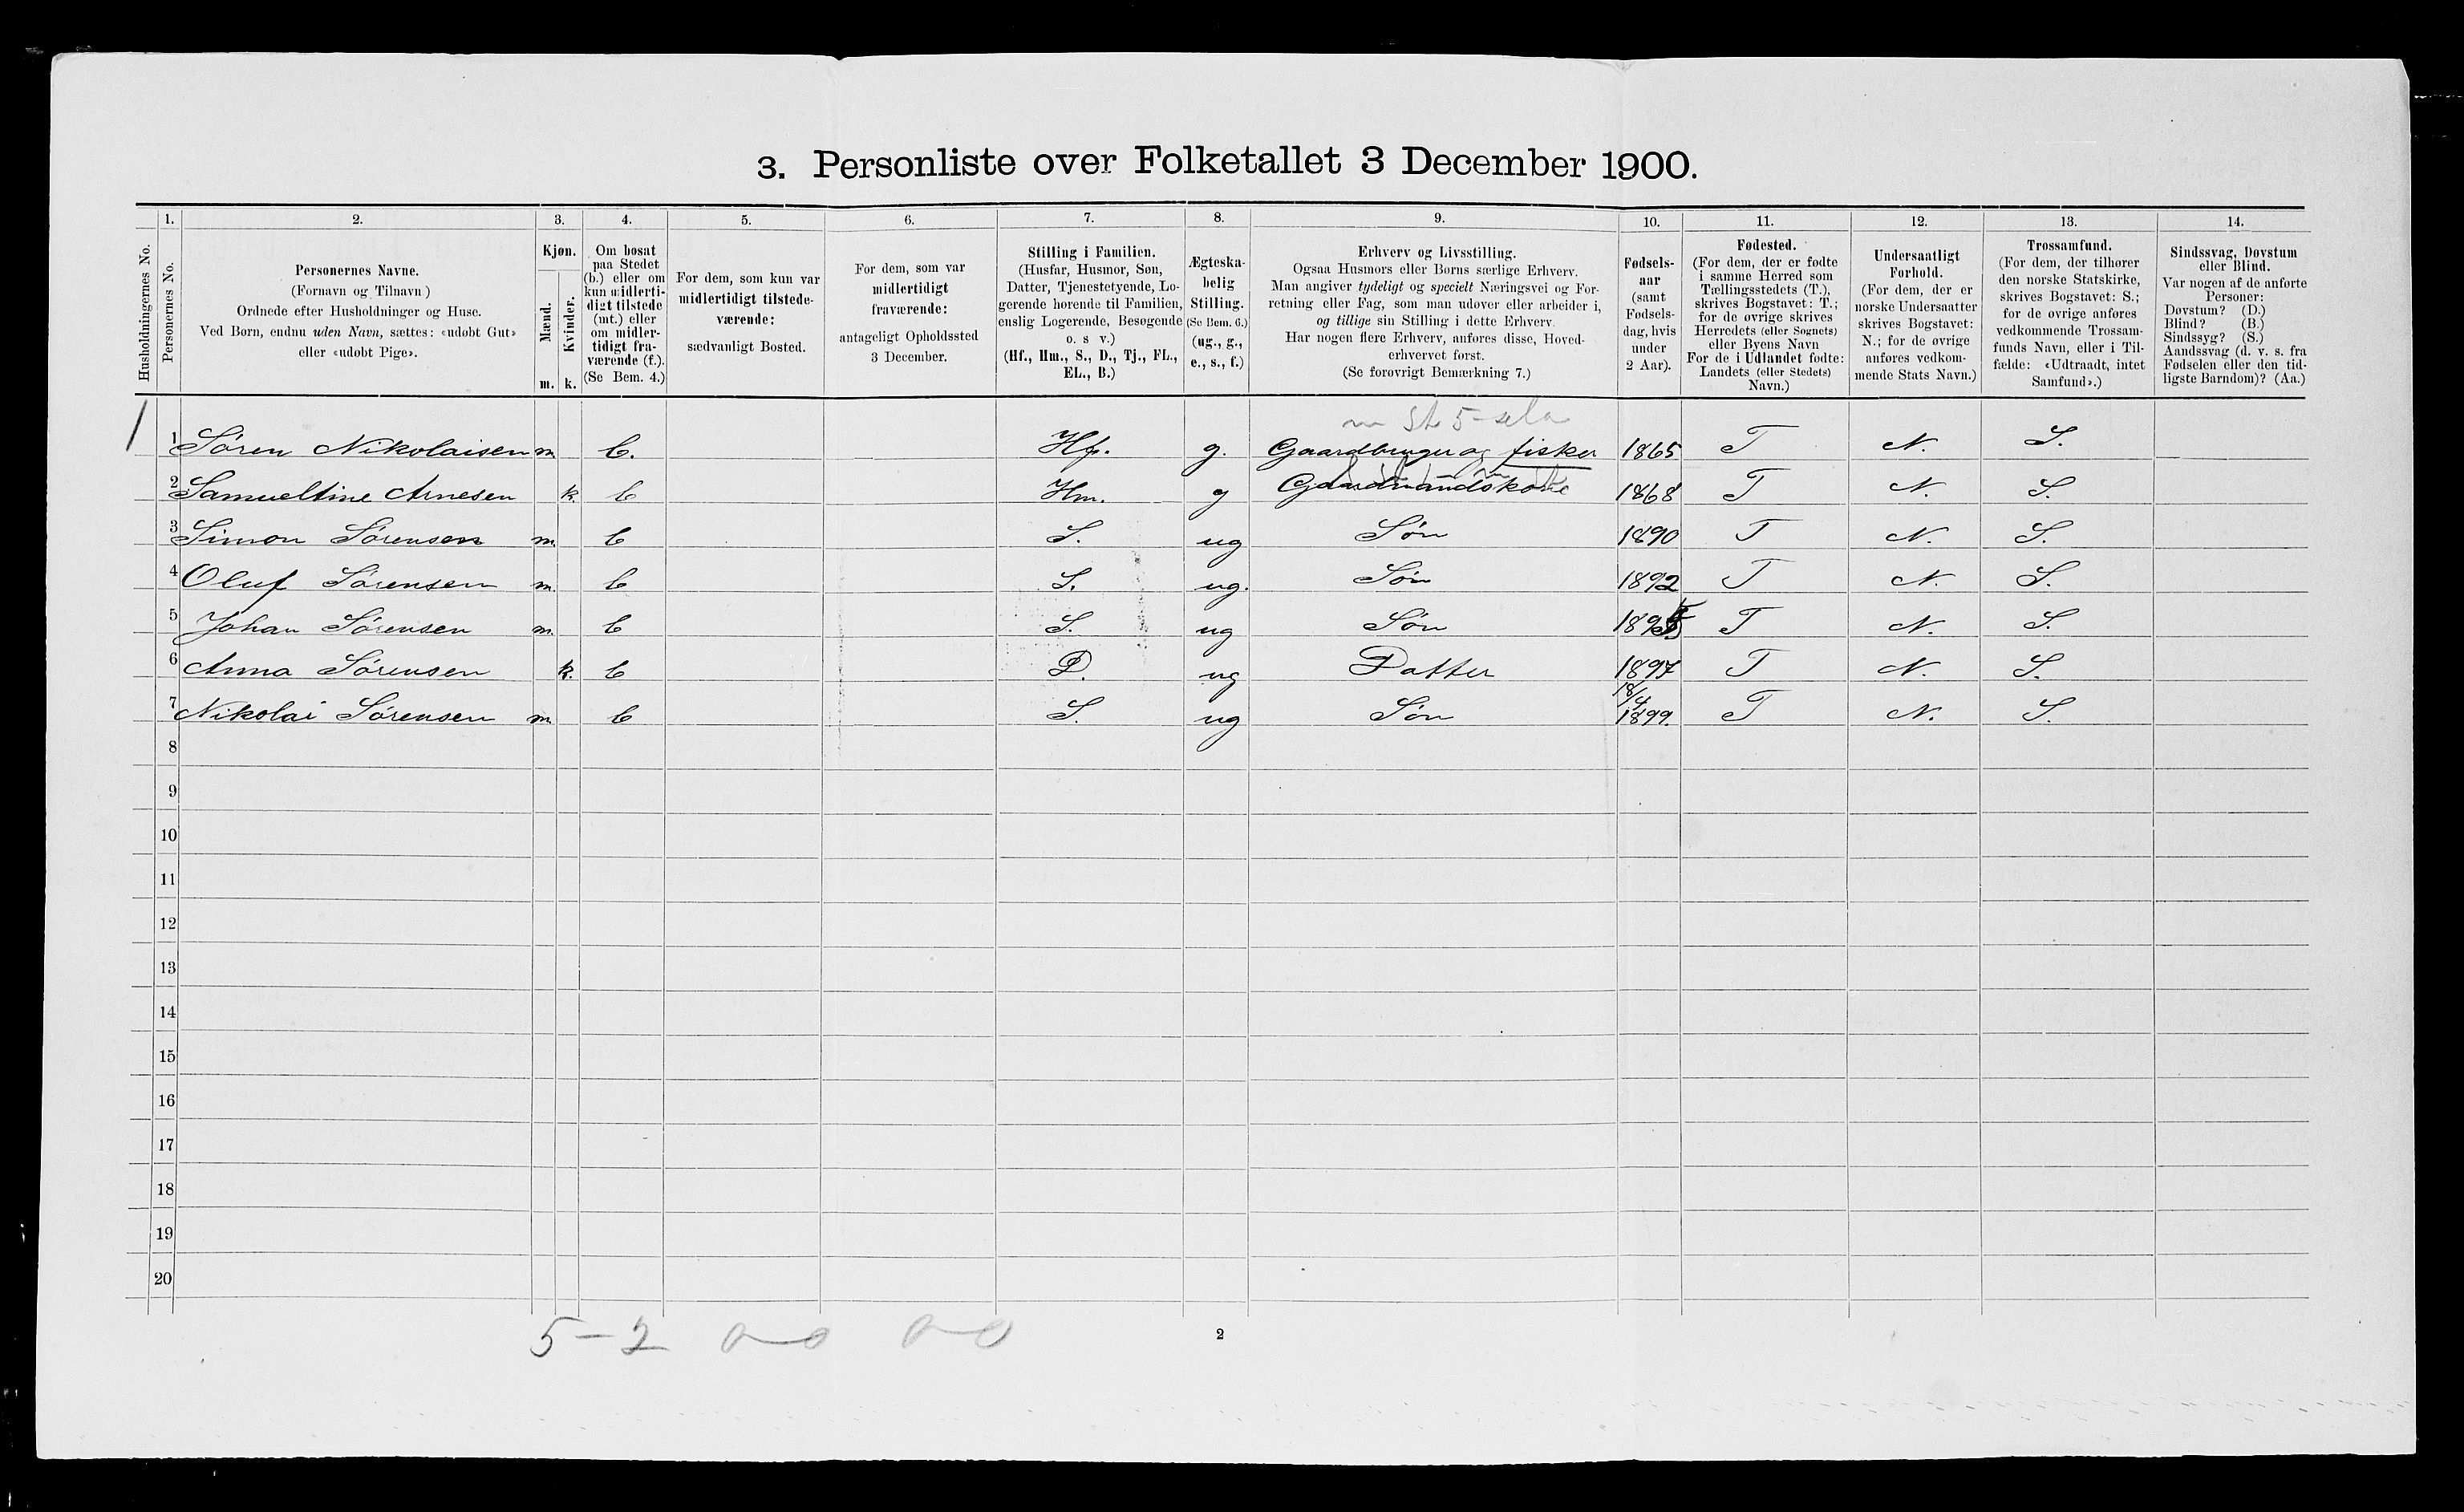 3. Personliste over Folketallet 3 December 1900.
1. 2. 3. 4. 5. 6. 7. 8. 9. 10. 11. 12. 13. 14.
Husholdningernes No.
Personernes No.
Personernes Navne.
(Fornavn og Tilnavn)
Ordnede efter Husholdninger og Huse.
Ved Børn, endnu uden Navn, sættes: «udøbt Gut»
eller «udøbt Pige».
Kjøn.
Mænd.
Kvinder.
m. k.
Om bosat
paa Stedet
(b.) eller om
kun midlerti-
digt tilstede
(mt.) eller
om midler-
tidigt fra-
værende (f.).
(Se Bem. 4.)
For dem, som kun var
midlertidigt tilstede-
værende:
sædvanligt Bosted.
For dem, som var
midlertidigt
fraværende:
antageligt Opholdssted
3 December.
Stilling i Familien.
(Husfar, Husmor, Søn,
Datter, Tjenestetyende, Lo-
gerende hørende til Familien,
enslig Logerende, Besøgende
o. s v.)
(Hf., Hm., S., D., Tj., FL.,
EL., B.)
Ægteska-
belig
Stilling.
(Se Bem. 6.)
(ug., g.,
e., s., f.)
Erhverv og Livsstilling.
Ogsaa Husmors eller Børns særlige Erhverv.
Man angiver tydeligt og specielt Næringsvei og For-
retning eller Fag, som man udøver eller arbeider i,
og tillige sin Stilling i dette Erhverv.
Har nogen flere Erhverv, anføres disse, Hoved-
erhvervet først.
(Se forøvrigt Bemærkning 7.)
Fødsels-
aar
(samt
Fødsels-
dag, hvis
under
2 Aar).
Fødested.
(For dem, der er fødte
i samme Herred som
Tællingsstedets (T.),
skrives Bogstavet: T.;
for de øvrige skrives
Herredets (eller Sognets)
eller Byens Navn
For de i Udlandet fødte:
Landets (eller Stedets)
Navn.)
Undersaatligt
Forhold.
(For dem, der er
norske Undersaatter
skrives Bogstavet:
N.; for de øvrige
anføres vedkom-
mende Stats Navn.)
Trossamfund.
(For dem, der tilhører
den norske Statskirke,
skrives Bogstavet: S.;
for de øvrige anføres
vedkommende Trossam-
funds Navn, eller i Til-
fælde: «Udtraadt, intet
Samfund».)
Sindssvag, Døvstum
eller Blind.
Var nogen af de anførte
Personer:
Døvstum? (D.)
Blind? (B.)
Sindssyg? (S.)
Aandssvag (d. v. s. fra
Fødselen eller den tid-
ligste Barndom)? (Aa.)
1 1 Søren Nikolaisen m. b. Hf. g. Gaardbruger og fisker 1865 T N. S.
2 Samueltine Arnesen k b Hm. g Gaardmandskone 1868 T N. S.
3 Simon Sørensen m. b S. ug Søn 1890 T N. S.
4 Oluf Sørensen m. b S. ug. Søn 1892 T N. S.
5 Johan Sørensen m. b S. ug Søn 1895 T N. S.
6 Anna Sørensen k. b D. ug Datter 1897 T N. S.
7 Nikolai Sørensen m. b S. ug Søn 18/4 1899. T N. S.
8
9
10
11
12
13
14
15
16
17
18
19
20
5-2 0-0 0-0 2